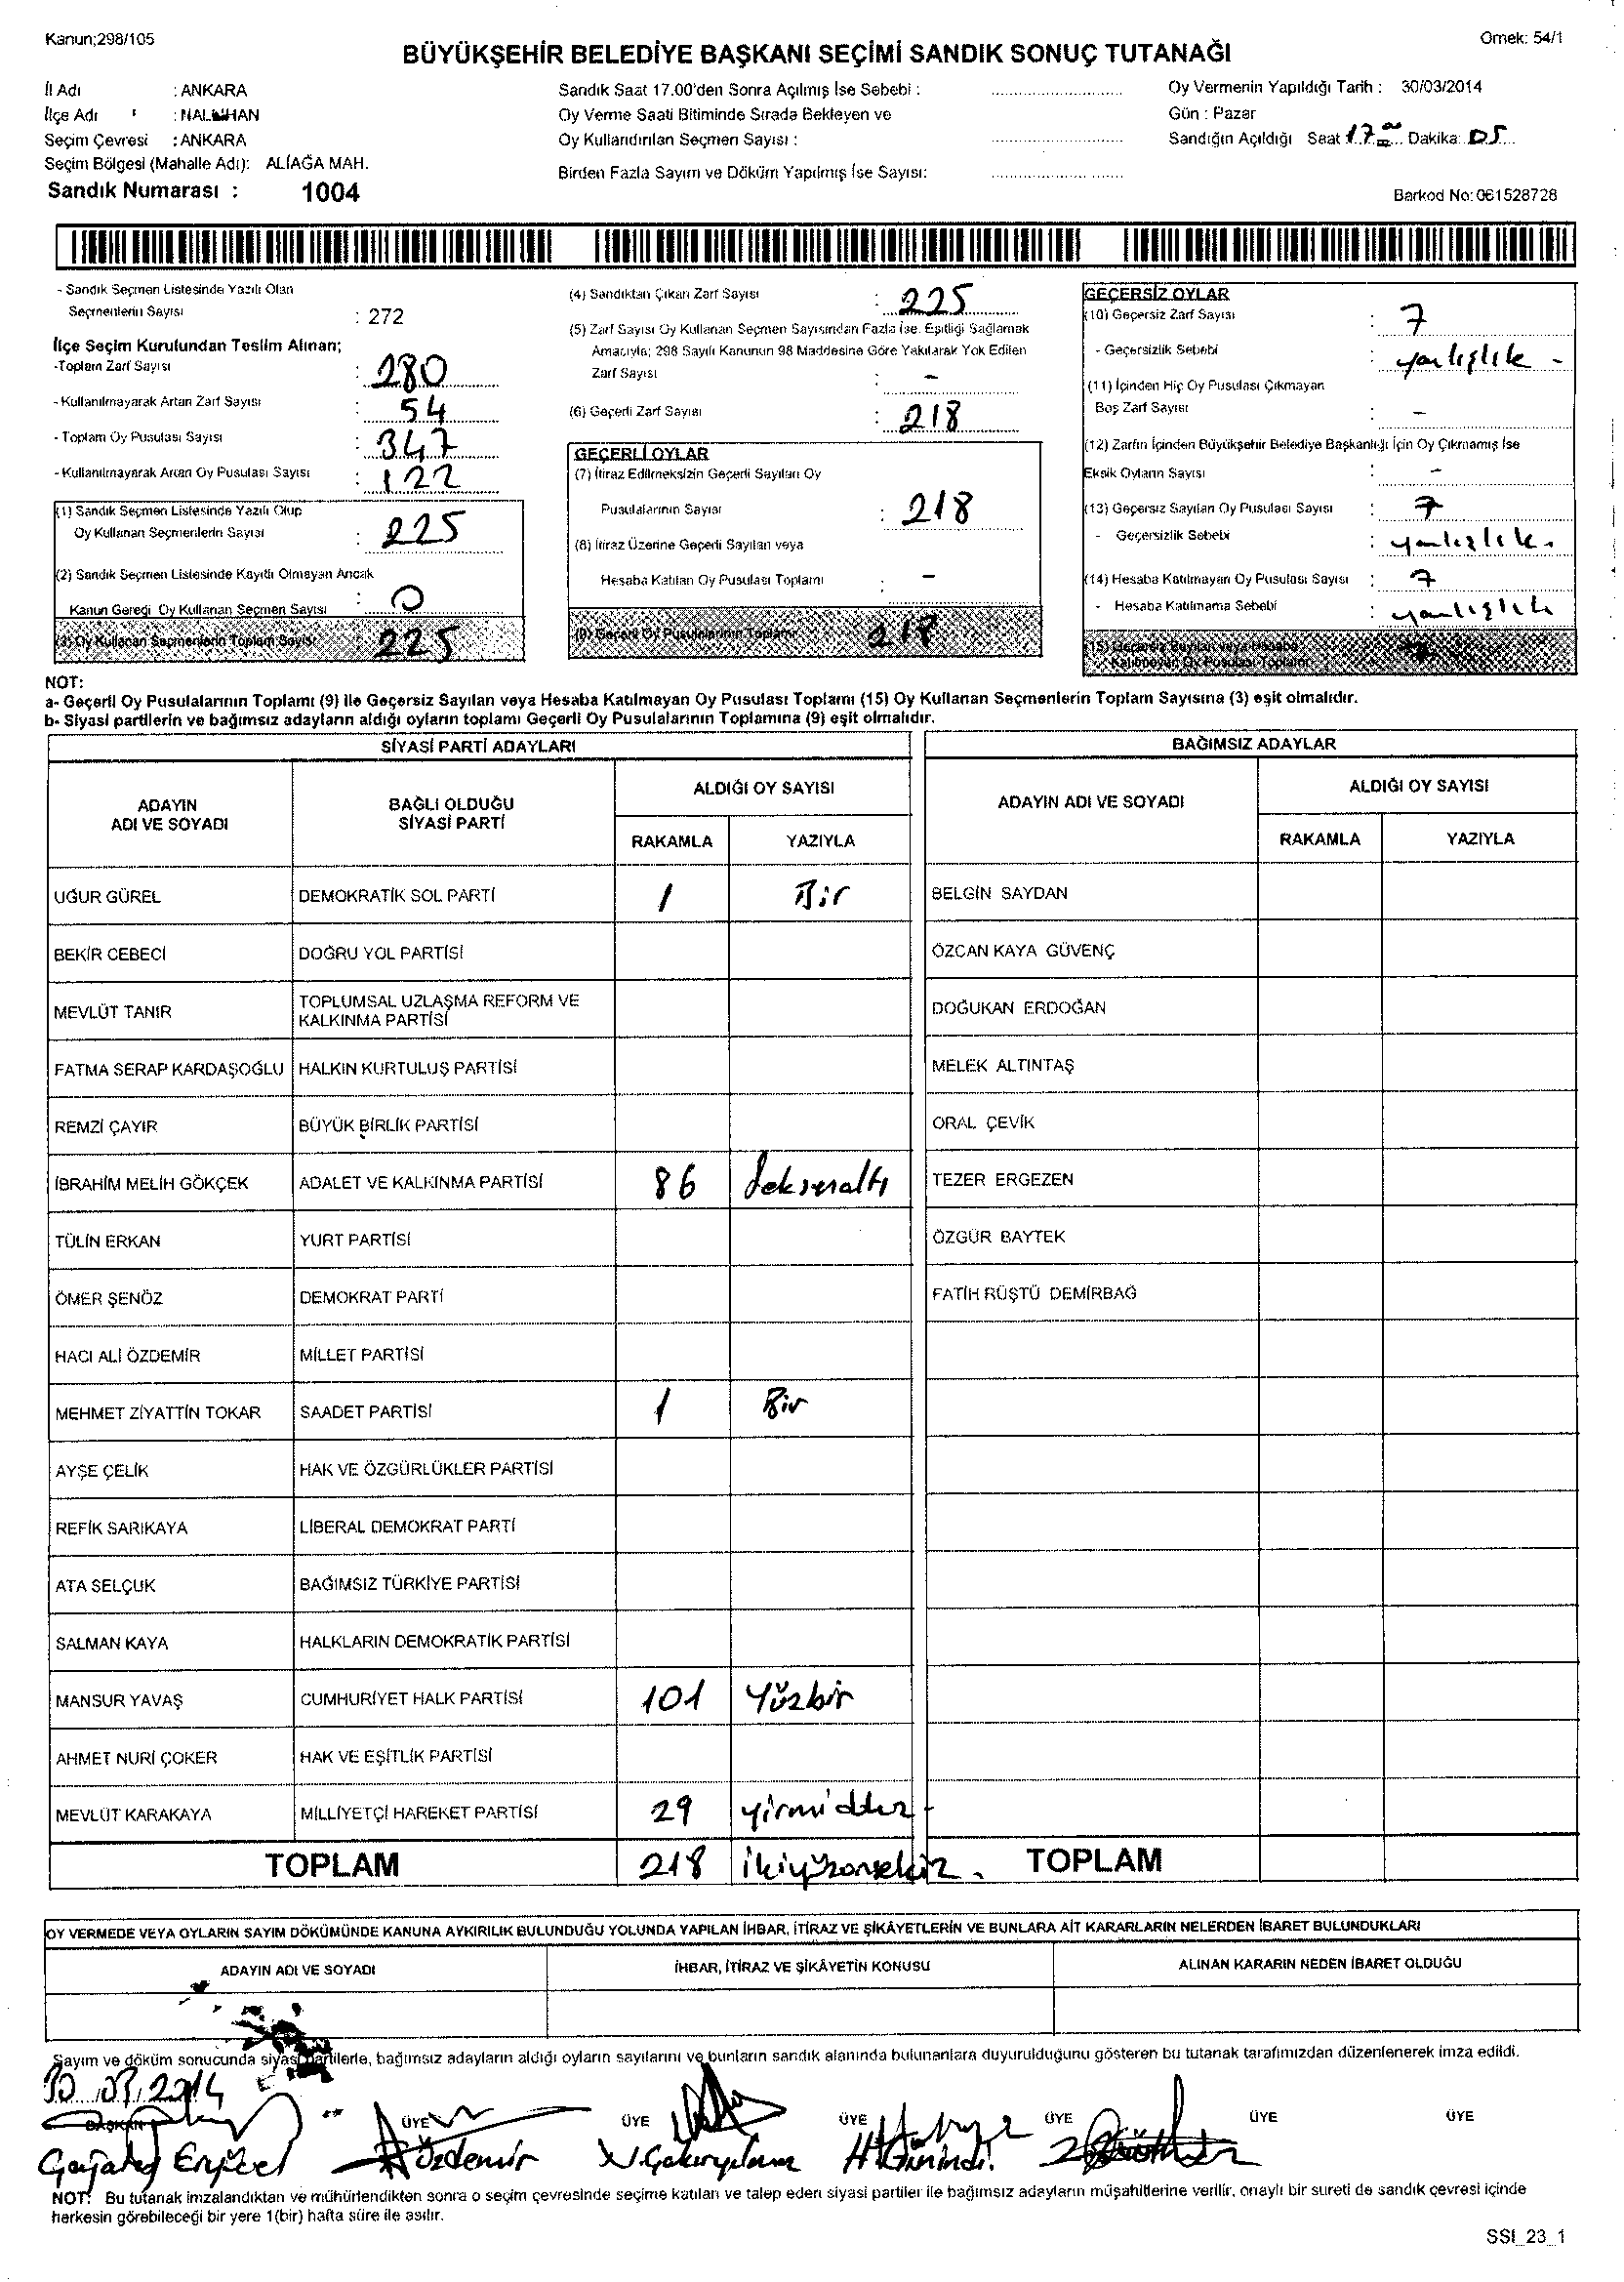 Kanun;298/105
Örnek: 54/1
BÜYÜKŞEHİR BELEDİYE BAŞKANI SEÇİMİ SANDIK SONUÇ TUTANAĞI
İl Adı : ANKARA
İlçe Adı : NALLIHAN
Seçim Çevresi : ANKARA
Seçim Bölgesi (Mahalle Adı): ALİAĞA MAH.
Sandık Numarası : 1004
Sandık Saat 17.00'den Sonra Açılmış İse Sebebi :
Oy Verme Saati Bitiminde Sırada Bekleyen ve
Oy Kullandırılan Seçmen Sayısı :
Birden Fazla Sayım ve Döküm Yapılmış İse Sayısı:
Oy Vermenin Yapıldığı Tarih : 30/03/2014
Gün : Pazar
Sandığın Açıldığı Saat 17.00 Dakika: 05
Barkod No: 061528728
- Sandık Seçmen Listesinde Yazılı Olan
Seçmenlerin Sayısı : 272
İlçe Seçim Kurulundan Teslim Alınan;
-Toplam Zarf Sayısı : 280
- Kullanılmayarak Artan Zarf Sayısı : 54
- Toplam Oy Pusulası Sayısı : 347
- Kullanılmayarak Artan Oy Pusulası Sayısı : 122
(1) Sandık Seçmen Listesinde Yazılı Olup
Oy Kullanan Seçmenlerin Sayısı : 225
(2) Sandık Seçmen Listesinde Kayıtlı Olmayan Ancak
Kanun Gereği Oy Kullanan Seçmen Sayısı : 0
(3) Oy Kullanan Seçmenlerin Toplam Sayısı : 225
(4) Sandıktan Çıkan Zarf Sayısı : 225
(5) Zarf Sayısı Oy Kullanan Seçmen Sayısından Fazla İse. Eşitliği Sağlamak
Amacıyla; 298 Sayılı Kanunun 98 Maddesine Göre Yakılarak Yok Edilen
Zarf Sayısı : -
(6) Geçerli Zarf Sayısı : 218
GEÇERLİ OYLAR
(7) İtiraz Edilmeksizin Geçerli Sayılan Oy
Pusulalarının Sayısı : 218
(8) İtiraz Üzerine Geçerli Sayılan veya
Hesaba Katılan Oy Pusulası Toplamı : -
(9) Geçerli Oy Pusulalarının Toplamı : 218
GEÇERSİZ OYLAR
(10) Geçersiz Zarf Sayısı : 7
- Geçersizlik Sebebi : yanlışlık -
(11) İçinden Hiç Oy Pusulası Çıkmayan
Boş Zarf Sayısı : -
(12) Zarfın İçinden Büyükşehir Belediye Başkanlığı İçin Oy Çıkmamış İse
Eksik Oyların Sayısı : -
(13) Geçersiz Sayılan Oy Pusulası Sayısı : 7
- Geçersizlik Sebebi : yanlışlık.
(14) Hesaba Katılmayan Oy Pusulası Sayısı : 7
- Hesaba Katılmama Sebebi : yanlışlık
(15) Geçersiz Sayılan veya Hesaba
Katılmayan Oy Pusulası Toplamı
NOT:
a- Geçerli Oy Pusulalarının Toplamı (9) ile Geçersiz Sayılan veya Hesaba Katılmayan Oy Pusulası Toplamı (15) Oy Kullanan Seçmenlerin Toplam Sayısına (3) eşit olmalıdır.
b- Siyasi partilerin ve bağımsız adayların aldığı oyların toplamı Geçerli Oy Pusulalarının Toplamına (9) eşit olmalıdır.
SİYASİ PARTİ ADAYLARI
BAĞIMSIZ ADAYLAR
ADAYIN
ADI VE SOYADI
BAĞLI OLDUĞU
SİYASİ PARTİ
ALDIĞI OY SAYISI
RAKAMLA YAZIYLA
ADAYIN ADI VE SOYADI
ALDIĞI OY SAYISI
RAKAMLA YAZIYLA
UĞUR GÜREL DEMOKRATİK SOL PARTİ 1 Bir BELGİN SAYDAN
BEKİR CEBECİ DOĞRU YOL PARTİSİ ÖZCAN KAYA GÜVENÇ
MEVLÜT TANIR TOPLUMSAL UZLAŞMA REFORM VE
KALKINMA PARTİSİ DOĞUKAN ERDOĞAN
FATMA SERAP KARDAŞOĞLU HALKIN KURTULUŞ PARTİSİ MELEK ALTINTAŞ
REMZİ ÇAYIR BÜYÜK BİRLİK PARTİSİ ORAL ÇEVİK
İBRAHİM MELİH GÖKÇEK ADALET VE KALKINMA PARTİSİ 86 Seksenaltı TEZER ERGEZEN
TÜLİN ERKAN YURT PARTİSİ ÖZGÜR BAYTEK
ÖMER ŞENÖZ DEMOKRAT PARTİ FATİH RÜŞTÜ DEMİRBAĞ
HACI ALİ ÖZDEMİR MİLLET PARTİSİ
MEHMET ZİYATTİN TOKAR SAADET PARTİSİ 1 Bir
AYŞE ÇELİK HAK VE ÖZGÜRLÜKLER PARTİSİ
REFİK SARIKAYA LİBERAL DEMOKRAT PARTİ
ATA SELÇUK BAĞIMSIZ TÜRKİYE PARTİSİ
SALMAN KAYA HALKLARIN DEMOKRATİK PARTİSİ
MANSUR YAVAŞ CUMHURİYET HALK PARTİSİ 101 Yüzbir
AHMET NURİ ÇOKER HAK VE EŞİTLİK PARTİSİ
MEVLÜT KARAKAYA MİLLİYETÇİ HAREKET PARTİSİ 29 yirmidokuz
TOPLAM 218 ikiyüzonsekiz. TOPLAM
OY VERMEDE VEYA OYLARIN SAYIM DÖKÜMÜNDE KANUNA AYKIRILIK BULUNDUĞU YOLUNDA YAPILAN İHBAR, İTİRAZ VE ŞİKÂYETLERİN VE BUNLARA AİT KARARLARIN NELERDEN İBARET BULUNDUKLARI
ADAYIN ADI VE SOYADI İHBAR, İTİRAZ VE ŞİKÂYETİN KONUSU ALINAN KARARIN NEDEN İBARET OLDUĞU
Sayım ve döküm sonucunda siyasi partilerle, bağımsız adayların aldığı oyların sayılarını ve bunların sandık alanında bulunanlara duyurulduğunu gösteren bu tutanak tarafımızdan düzenlenerek imza edildi.
30.03.2014
BAŞKAN ÜYE ÜYE ÜYE ÜYE ÜYE ÜYE
Özdemir
NOT: Bu tutanak imzalandıktan ve mühürlendikten sonra o seçim çevresinde seçime katılan ve talep eden siyasi partiler ile bağımsız adayların müşahitlerine verilir, onaylı bir sureti de sandık çevresi içinde
herkesin görebileceği bir yere 1(bir) hafta süre ile asılır.
SSI_23_1